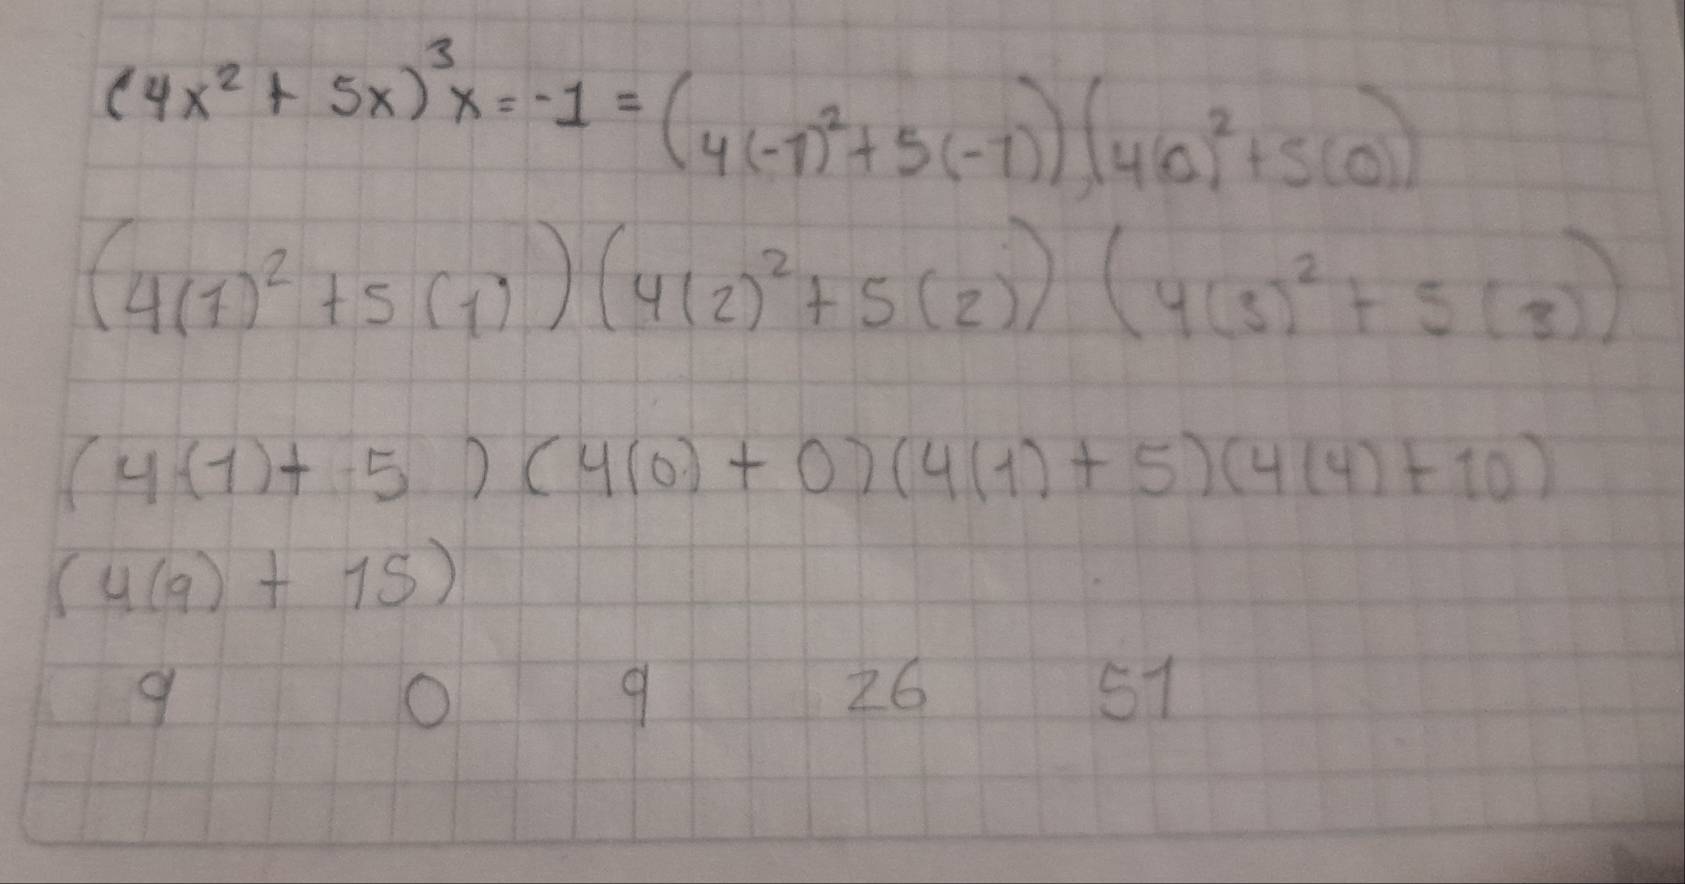 (4x² + 5x)³ x = -1 = (4(-1)² + 5(-1)), (4(0)² + 5(0))
(4(1)² + 5(1)) (4(2)² + 5(2)) (4(3)² + 5(3))
(4(1) + 5) (4(0) + 0) (4(1) + 5) (4(4) + 10)
(4(9) + 15)
9 0 9 26 51